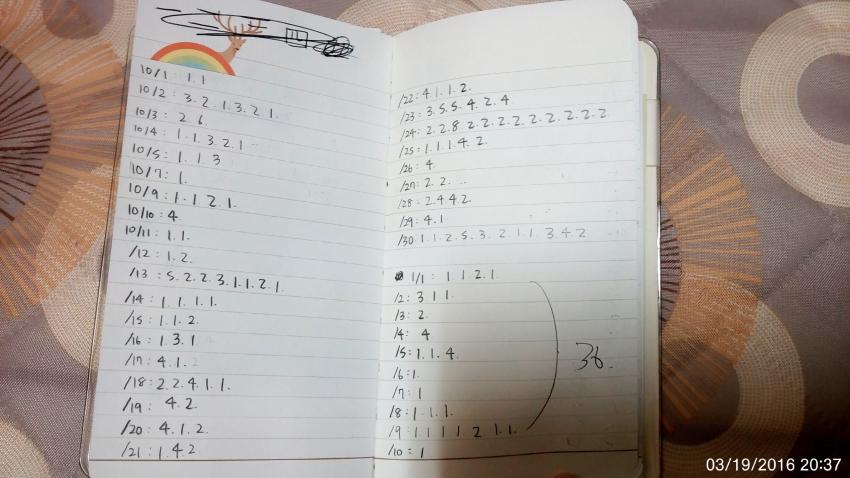 10/1 : 1. 1
10/2 : 3. 2. 1. 3. 2 1.
10/3 : 2 6.
10/4 : 1. 1. 3. 2. 1
10/5 : 1. 1 3
10/7 : 1.
10/9 : 1. 1. 2 1.
10/10 : 4
10/11 : 1. 1.
/12 : 1. 2.
/13 : 5. 2. 2. 3. 1. 1. 2. 1.
/14 : 1. 1. 1. 1.
/15 : 1. 1. 2.
/16 : 1. 3. 1
/17 : 4. 1. 2
/18 : 2. 2. 4. 1. 1.
/19 : 4. 2.
/20 : 4. 1. 2.
/21 : 1. 4 2
/22 : 4 1. 1. 2.
/23 : 3. 5. 5. 4. 2. 4
/24 : 2. 2. 8. 2. 2. 2. 2. 2. 2. 2. 2. 2
/25 : 1. 1. 1. 4. 2.
/26 : 4.
/27 : 2. 2.
/28 : 2. 4 4. 2.
/29 : 4. 1.
/30 : 1. 1. 2. 5. 3. 2. 1. 1. 3. 4. 2
1/1 : 1. 1 2. 1.
/2 : 3 1 1.
/3 : 2.
/4 : 4
/5 : 1. 1. 4.
36.
/6 : 1.
/7 : 1
/8 : 1. 1. 1.
/9 : 1 1 1 1. 2 1. 1.
/10 : 1
03/19/2016 20:37